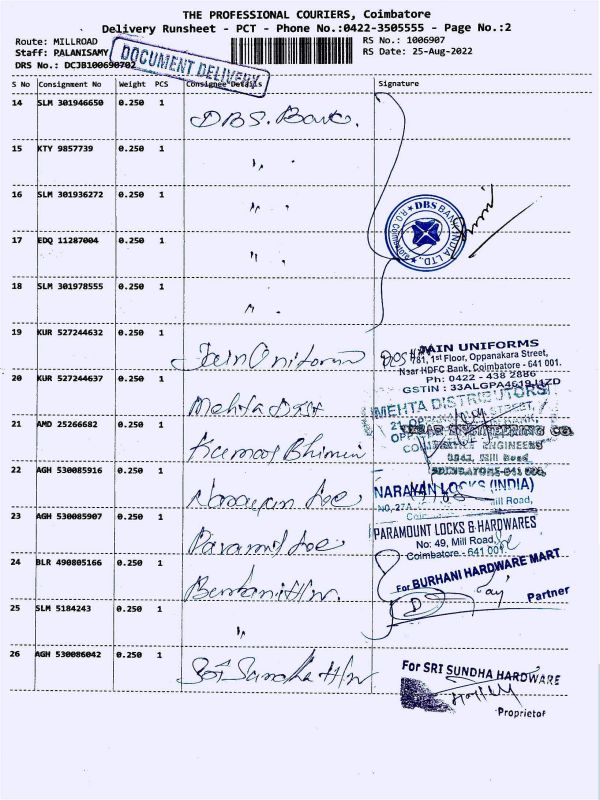 THE PROFESSIONAL COURIERS, Coimbatore
Delivery Runsheet - PCT - Phone No.:0422-3505555 - Page No.:2
Route: MILLROAD
RS No.: 1006907
Staff: PALANISAMY
RS Date: 25-Aug-2022
DRS No.: DCJB100690702
DOCUMENT DELIVERY
S No Consignment No Weight PCS Consignee Details Signature
14 SLM 301946650 0.250 1 DBS. Bank.
15 KTY 9857739 0.250 1 " "
16 SLM 301936272 0.250 1 " "
DBS BANK INDIA LTD.
R.O. Coimbatore
17 EDQ 11287004 0.250 1 " "
18 SLM 301978555 0.250 1 " "
19 KUR 527244632 0.250 1 Jain Uniform
JAIN UNIFORMS
781, 1st Floor, Oppanakara Street,
Near HDFC Bank, Coimbatore - 641 001.
Ph: 0422 - 438 2886
GSTIN : 33ALGPA4619J1ZD
20 KUR 527244637 0.250 1 Mehta Dist
MEHTA DISTRIBUTORS
21 AMD 25266682 0.250 1 Kumar Bhimin
ENGINEERING CO.
ENGINEERS
Mill Road
COIMBATORE-641 001.
22 AGH 530085916 0.250 1 Narayan Loc
NARAYAN LOCKS (INDIA)
NO, 27A Mill Road,
23 AGH 530085907 0.250 1 Paramut Loc
PARAMOUNT LOCKS & HARDWARES
No: 49, Mill Road,
Coimbatore - 641 001
24 BLR 490805166 0.250 1 Burhani H/w.
For BURHANI HARDWARE MART
Partner
25 SLM 5184243 0.250 1 "
26 AGH 530086042 0.250 1 Sri Sundha H/w
For SRI SUNDHA HARDWARE
Proprietor